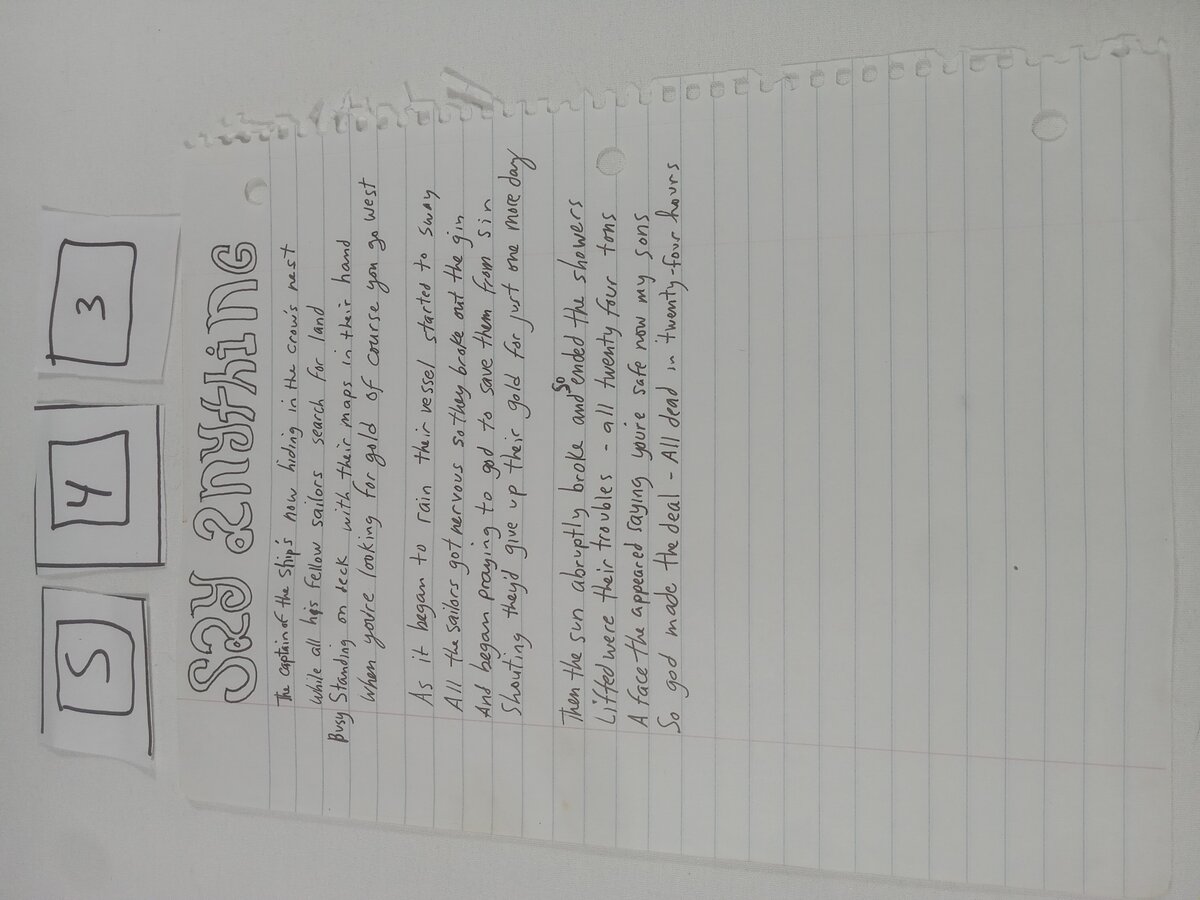 5 4 3
Say anything
The captain of the ship's now hiding in the crow's nest
while all his fellow sailors search for land
Busy Standing on deck with their maps in their hand
when you're looking for gold of course you go west
As it began to rain their vessel started to sway
All the sailors got nervous so they broke out the gin
And began praying to god to save them from sin
Shouting they'd give up their gold for just one more day
Then the sun abruptly broke and so ended the showers
Lifted were their troubles - all twenty four tons
A face the appeared saying you're safe now my sons
So god made the deal - All dead in twenty-four hours